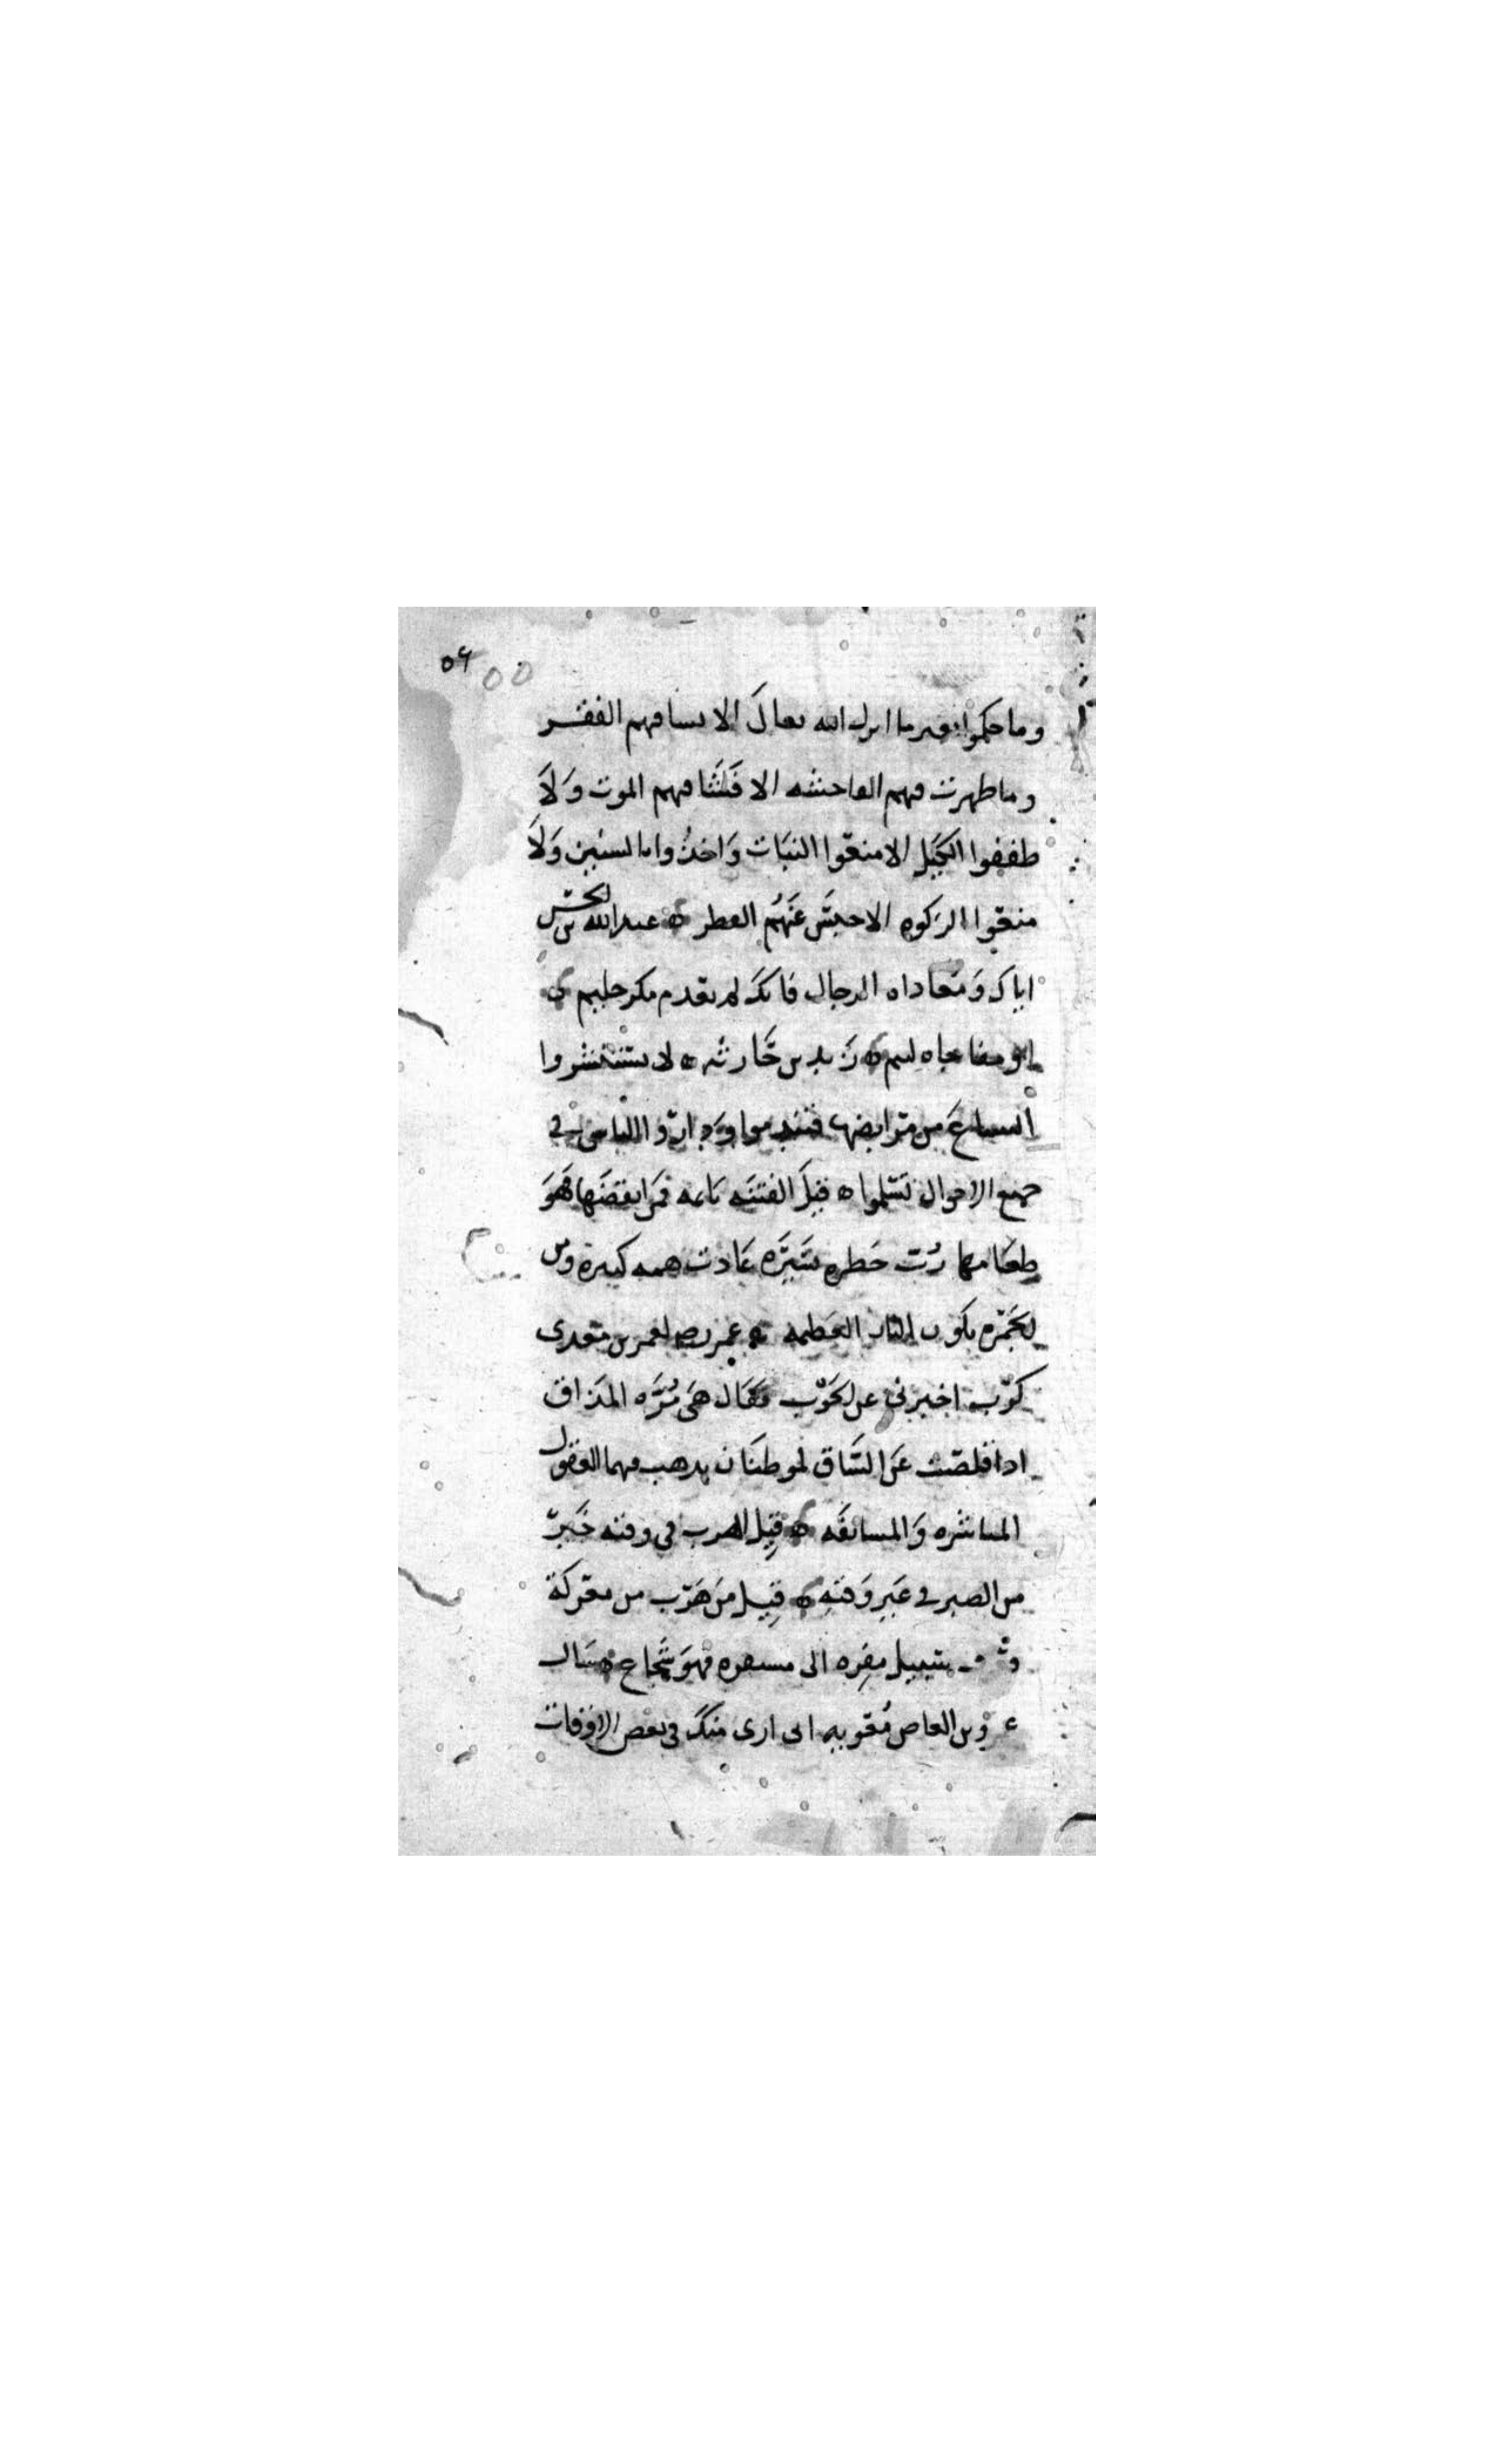 ٥٦ ٥٥
وما حكموا بغير ما انزل الله تعالى الا فشا فيهم الفقر
وما ظهرت فيهم الفاحشه الا فشا فيهم الموت ولا
طففوا الكيل الا منعوا النبات واخذوا بالسنين ولا
منعوا الزكوه الا حبس عنهم القطر ه عبدالله بن الحسن
اياك ومعاداه الرجال فانك لم تعدم مكر حليم
او مفاجاه لئيم ه زيد بن حارثه ه لا تستثيروا
السباع من مرابضها فتندموا وداروا الناس في
جميع الاحوال تسلموا ه قيل الفتنه نائمه فمن ايقضها فهو
طعامها رب خطره يسيره عادت همه كبيره ومن
الجمره يكون النار العظيمه ه عمر رضه لعمرو بن معدي
كرب اخبرني عن الحرب فقال هي مره المذاق
اذا قلصت عن الساق لموطنان يذهب فيهما العقول
المباشره والمسابقه ه قيل الهرب في وقته خير
من الصبر في غير وقته ه قيل من هرب من معركة
سبيل مفره الى مستقره فهو شجاع ه سال
بن العاص معويه اني ارى منك في بعض الاوقات